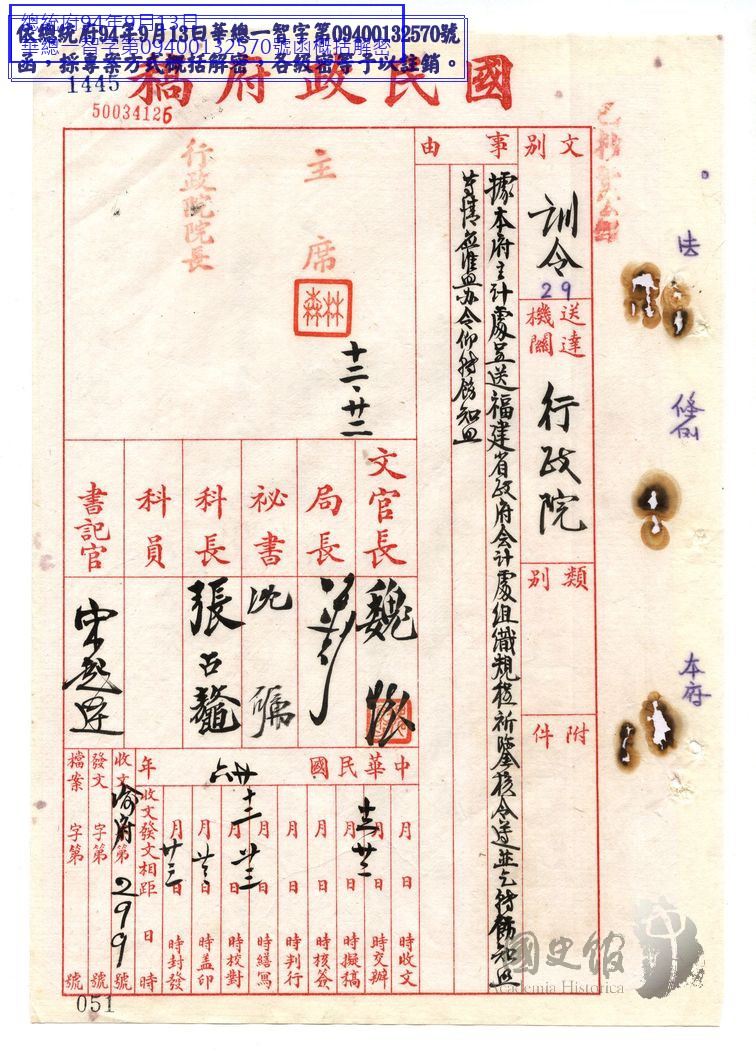 總統府94年9月13日
華總一智字第09400132570號函概括解密
依總統府94年9月13日華總一智字第09400132570號
函，採專案方式概括解密，各級密等予以註銷。
1445
50034126
國民政府稿
文別
訓令
29
送達機關
行政院
類別
附件
事由
據本府主計處呈送福建省政府会計處組織規程祈鑒核令遵並乞轉飭知照
等情
令仰轉飭知照
主席
行政院院長
十二、廿二
文官長
魏懷
局長
祕書
科長
張占鰲
科員
書記官
中華民國
廿六
年
月 日 時收文
十二月廿二日 時交辦
月 日 時擬稿
月 日 時核簽
月 日 時判行
月 日 時繕寫
十二月廿三日 時校對
月 日 時蓋印
月廿三日 時封發
收文發文相距 日 時
收文渝府字第299號
發文 字第 號
檔案 字第 號
法
條例
本府
國史館
Academia Historica
051